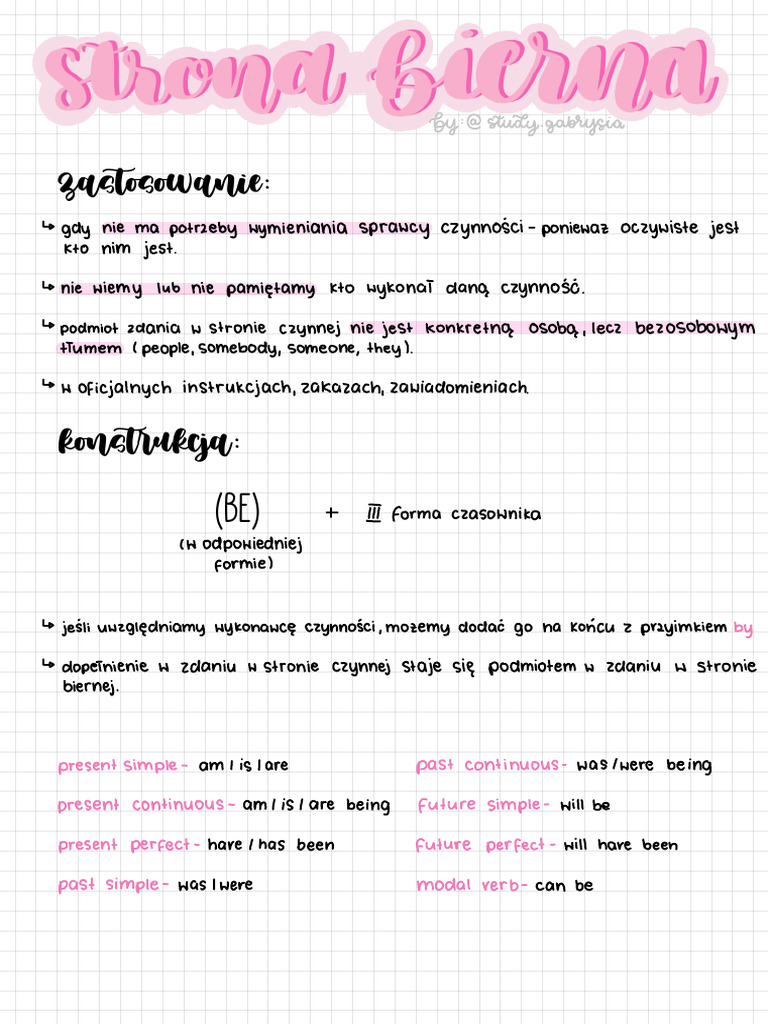 strona bierna
by: @ study.gabrysia
zastosowanie:
↳ gdy nie ma potrzeby wymieniania sprawcy czynności - ponieważ oczywiste jest
kto nim jest.
↳ nie wiemy lub nie pamiętamy kto wykonał daną czynność.
↳ podmiot zdania w stronie czynnej nie jest konkretną osobą, lecz bezosobowym
tłumem (people, somebody, someone, they).
↳ w oficjalnych instrukcjach, zakazach, zawiadomieniach.
konstrukcja:
(BE) + III forma czasownika
(w odpowiedniej
formie)
↳ jeśli uwzględniamy wykonawcę czynności, możemy dodać go na końcu z przyimkiem by
↳ dopełnienie w zdaniu w stronie czynnej staje się podmiotem w zdaniu w stronie
biernej.
present simple - am / is / are
present continuous - am / is / are being
present perfect - have / has been
past simple - was / were
past continuous - was / were being
future simple - will be
future perfect - will have been
modal verb - can be